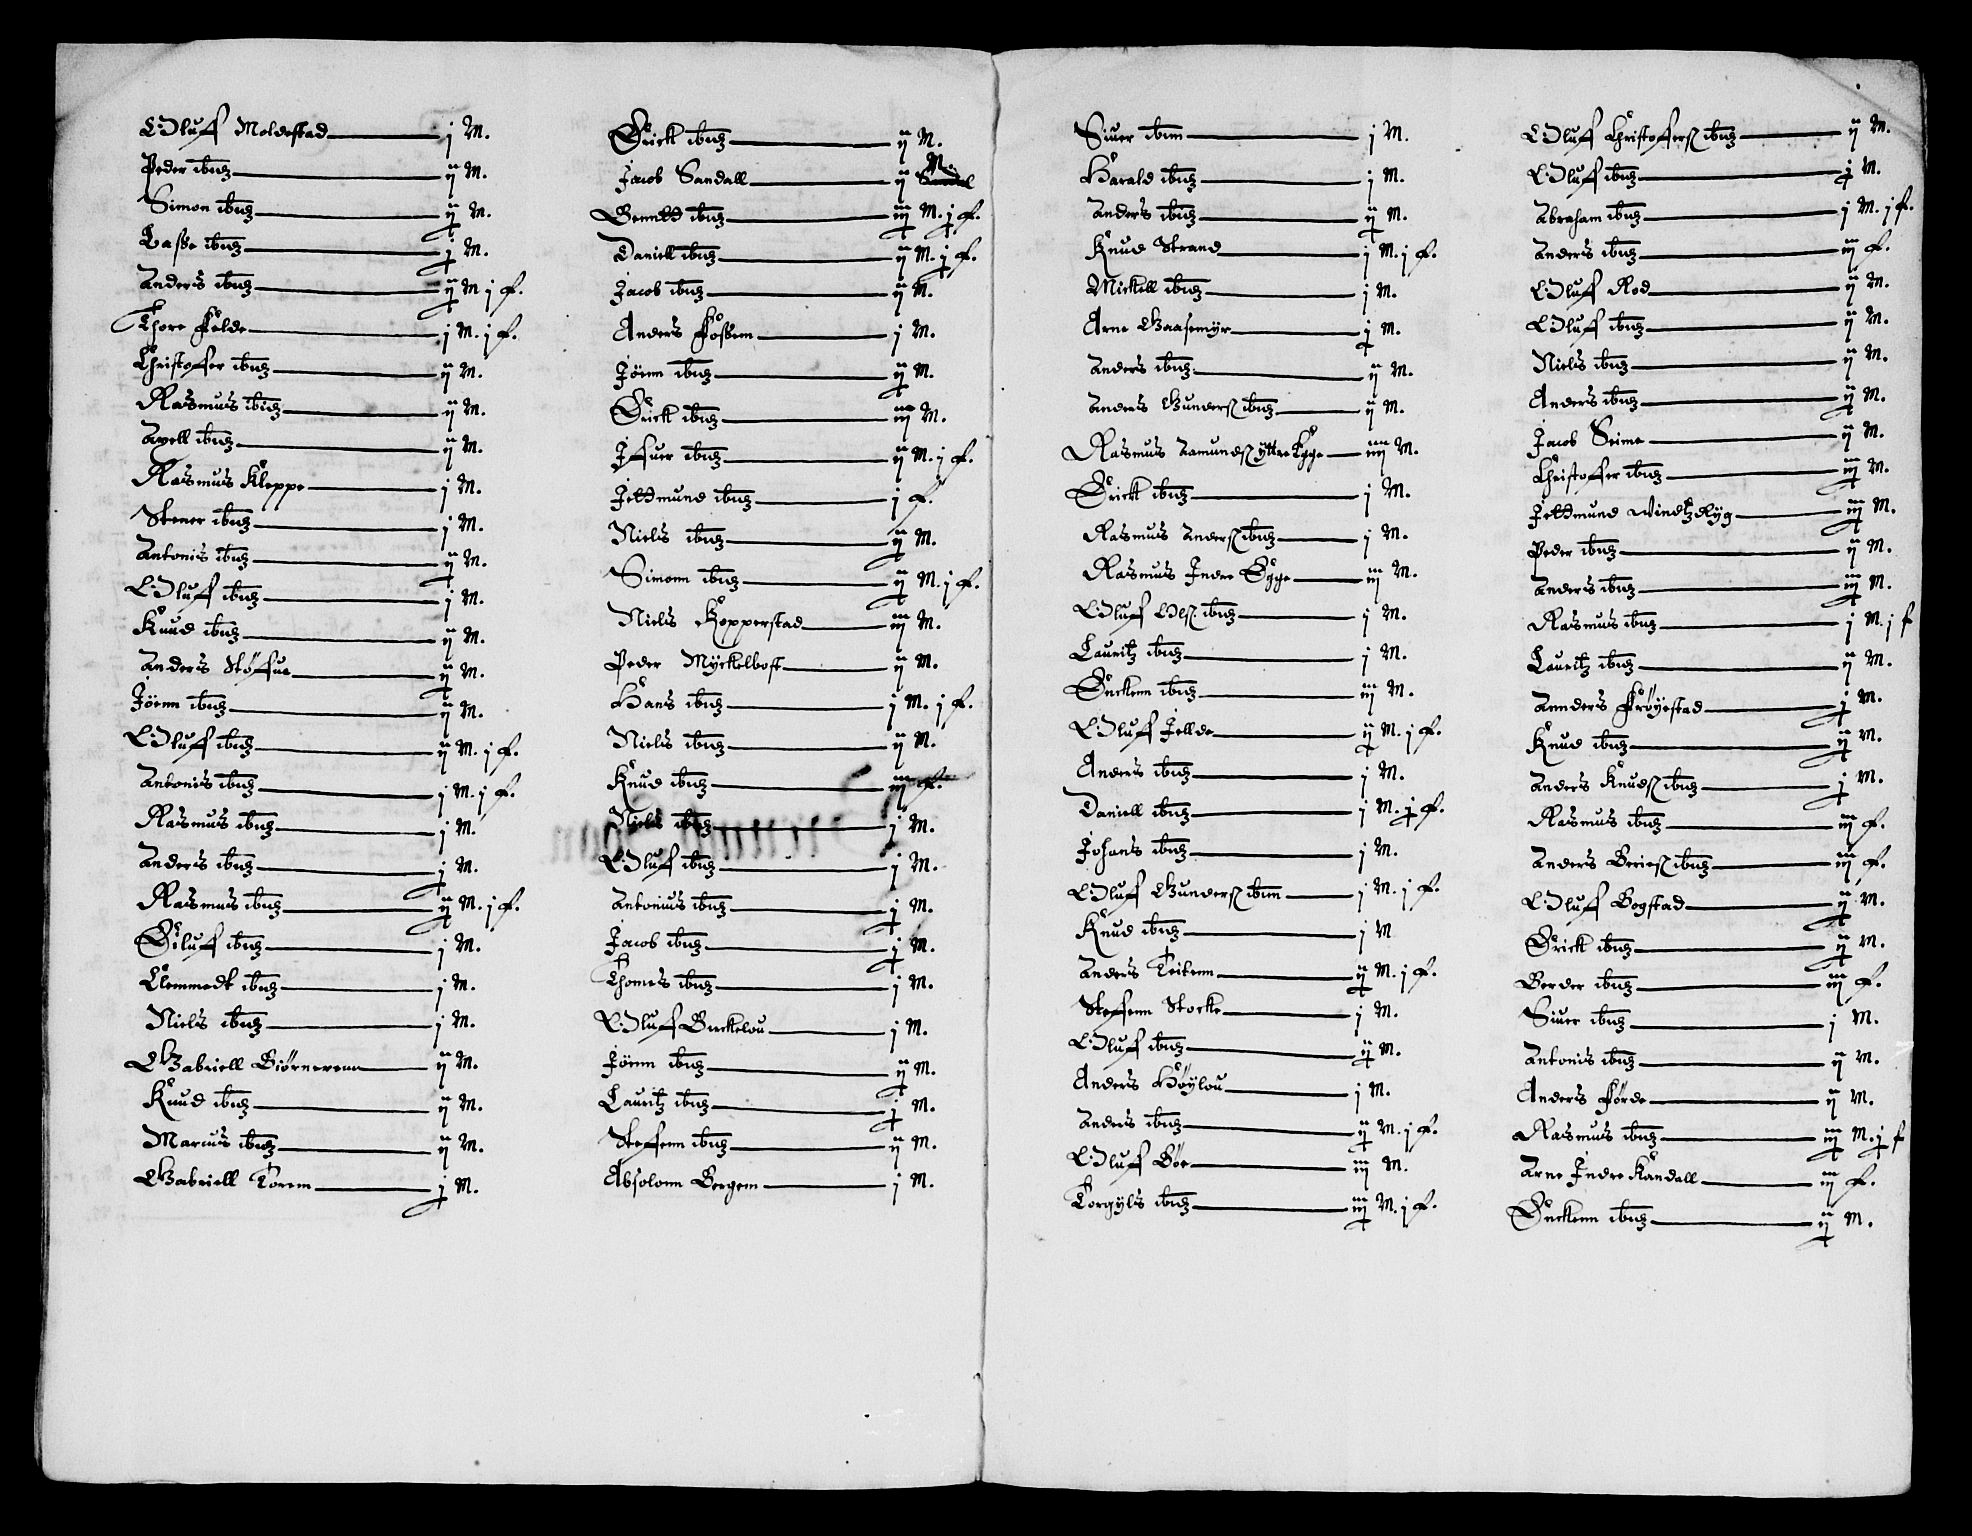 Oluff Moldestad j M.
Peder ibid ij M.
Simon ibid ij M.
Lasse ibid j M.
Anders ibid ij M j f.
Thore Felde j M. j f.
Christoffer ibid ij M.
Rasmus ibid ij M.
Axell ibid ij M.
Rasmus Kleppe j M.
Stener ibid j M.
Antonis ibid ij M.
Oluff ibid j M.
Knud ibid ij M.
Anders Støffue ij M.
Jöenn ibid ij M.
Oluff ibid ij M. j f.
Antonis ibid j M. j f.
Rasmus ibid j M.
Anders ibid j M.
Rasmus ibid ij M. j f.
Eiluff ibid j M.
Clemmedt ibid j M.
Niels ibid j M.
Gabriell Biørnerem ij M.
Knud ibid ij M.
Marcus ibid ij M.
Gabriell Torem j M.
Erick ibid ij M.
Jacob Sandall ij M.
Benndt ibid iij M. j f.
Daniell ibid ij M. j f.
Jacob ibid ij M.
Anders Fossem j M.
Jöenn ibid ij M.
Erick ibid iij M.
Iffuer ibid ij M. j f.
Jettmund ibid j f.
Niels ibid ij M.
Simonn ibid ij M. j f.
Niels Kopperstad iij M.
Peder Myckelbost ij M.
Hans ibid j M. j f.
Niels ibid ij M.
Knud ibid iij f.
Niels ibid j M.
Oluff ibid j M.
Antonius ibid j M.
Jacob ibid j M.
Thomes ibid j M.
Oluff Birckelou j M.
Jöenn ibid ij M.
Lauritz ibid j M.
Steffenn ibid ij M.
Absolonn Bergem j M.
Siuer ibim j M.
Harald ibid j M.
Anders ibid ij M.
Knud Strand j M. j f.
Mickell ibid j M.
Arne Gaasemÿr j M.
Anders ibid ij M.
Anders Gunderß ibid ij M.
Rasmus Aamundß ÿttre Egge iiij M.
Erick ibid j M.
Rasmus Anderß ibid j M.
Rasmus Indre Egge iij M.
Oluff Olß. ibid j M.
Lauritz ibid j M.
Enckenn ibid iij M.
Oluff Jellde ij M. j f.
Anders ibid j M.
Daniell ibid j M. j f.
Johans ibid j M.
Oluff Gunderß ibim j M. j f.
Knud ibid j M
Anders Teitenn ij M. j f.
Steffenn Stocke j M.
Oluff ibid ij M.
Anders Høÿlou j M.
Anders ibid ij M. j f.
Oluff Böe iij M.
Torgÿls ibid iij M. j f.
Oluff Christofferß ibid ij M.
Oluff ibid j M.
Abraham ibid j M. j f.
Anders ibid iij f.
Oluff Rod ij M.
Oluff ibid ij M.
Niels ibid ij M.
Anders ibid ij M.
Jacob Seime ij M.
Christoffer ibid iij M.
Jettmund Windtz Rÿg iij M.
Peder ibid ij M.
Anders ibid iij M.
Rasmus ibid j M. j f
Lauritz ibid ij M.
Annders Frøyestad j M.
Knud ibid ij M.
Anders Knudß ibid j M.
Rasmus ibid iij f.
Anders Berieß ibid iij f.
Oluff Bogstad ij M.
Erick ibid ij M.
Berder ibid iij f.
Siuer ibid j M.
Antonis ibid ij M.
Anders Førde ij M.
Rasmus ibid iij M. j f
Arne Indre Kandall iij f.
Enckenn ibid ij M.